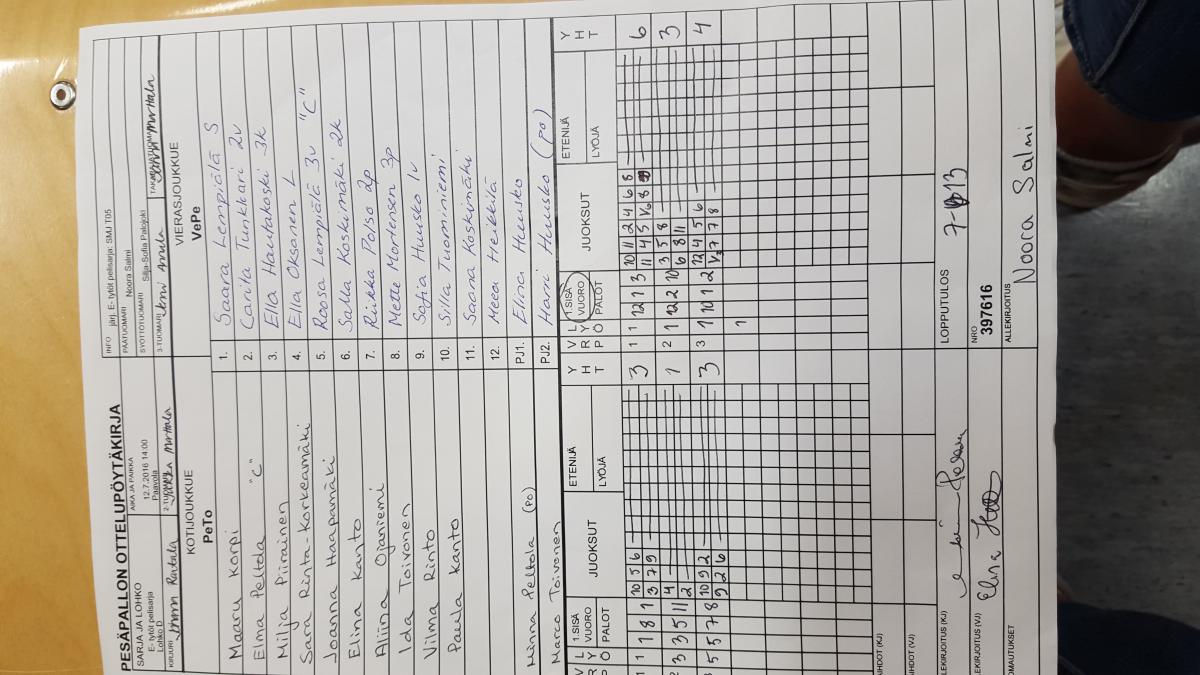 PESÄPALLON OTTELUPÖYTÄKIRJA
INFO järj. E- tytöt pelisarja; SMJ T05
SARJA JA LOHKO
E- tytöt pelisarja
Lohko D
AIKA JA PAIKKA
12.7.2016 14:00
Paavola
PÄÄTUOMARI Noora Salmi
SYÖTTÖTUOMARI Silja-Sofia Palojoki
KIRJURI
2-TUOMARI Jukka Marttala
3-TUOMARI
TAKARAJATUOMARI
KOTIJOUKKUE
PeTo
VIERASJOUKKUE
VePe
Maaru Korpi 1. Saara Lempiälä S
Elma Peltola "C" 2. Carita Tunkkari 2v
Milja Piirainen 3. Ella Hautakoski 3k
Sara Rinta-Korkeamäki 4. Ella Oksanen L
Joanna Haapamäki 5. Roosa Lempiälä 3v "C"
Elina Kanto 6. Salla Koskimäki 2k
Aliina Ojaniemi 7. Riikka Polso 2p
Ida Toivonen 8. Mette Mortensen 3p
Vilma Rinto 9. Sofia Huusko 1v
Paula Kanto 10. Silla Tuominiemi
11. Saana Koskimäki
12. Meea Heikkilä
Minna Peltola (PO) PJ1. Elina Huusko
Marco Toivonen PJ2. Harri Huusko (PO)
V R P L Y Ö 1.SISÄ VUORO PALOT JUOKSUT ETENIJÄ LYÖJÄ Y H T V R P L Y Ö 1.SISÄ VUORO PALOT JUOKSUT ETENIJÄ LYÖJÄ Y H T
1 1 1 8 1 10 5 6 3 1 1 12 1 3 10 11 2 4 6 8 6
3 7 9 11 4 5
2 3 3 5 11 4 1 2 1 12 2 10 3 5 8 3
2 6 8 11
3 5 5 7 8 10 9 2 3 3 1 10 1 2 12 4 5 6 4
9 2 6 7 7 8
1
AIHDOT (KJ)
AIHDOT (VJ)
LEKIRJOITUS (KJ)
LOPPUTULOS 7- 13
LEKIRJOITUS (VJ)
NRO
397616
OMAUTUKSET
ALLEKIRJOITUS
Noora Salmi